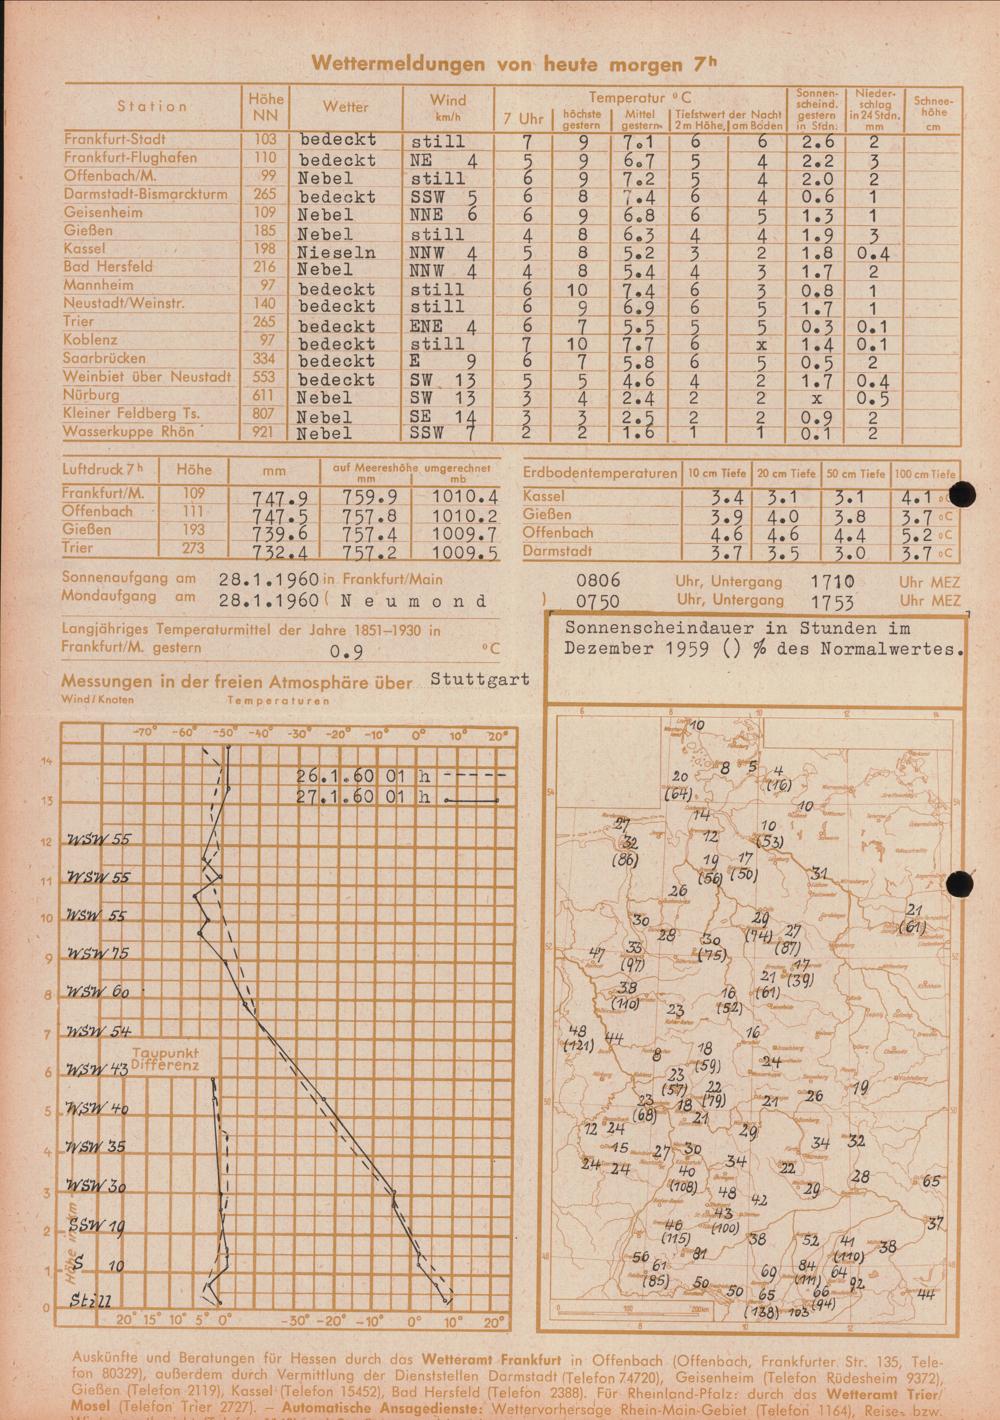 Wettermeldungen von heute morgen 7h
Station Höhe NN Wetter Wind km/h Temperatur °C Sonnen- scheind. gestern in Stdn: Nieder- schlag in 24 Stdn. mm Schnee- höhe cm
7 Uhr höchste gestern Mittel gestern Tiefstwert der Nacht 2m Höhe, am Boden
Frankfurt-Stadt 103 bedeckt still 7 9 7.1 6 6 2.6 2
Frankfurt-Flughafen 110 bedeckt NE 4 5 9 6.7 5 4 2.2 3
Offenbach/M. 99 Nebel still 6 9 7.2 5 4 2.0 2
Darmstadt-Bismarckturm 265 bedeckt SSW 5 6 8 7.4 6 4 0.6 1
Geisenheim 109 Nebel NNE 6 6 9 6.8 6 5 1.3 1
Gießen 185 Nebel still 4 8 6.3 4 4 1.9 3
Kassel 198 Nieseln NNW 4 5 8 5.2 3 2 1.8 0.4
Bad Hersfeld 216 Nebel NNW 4 4 8 5.4 4 3 1.7 2
Mannheim 97 bedeckt still 6 10 7.4 6 3 0.8 1
Neustadt/Weinstr. 140 bedeckt still 6 9 6.9 6 5 1.7 1
Trier 265 bedeckt ENE 4 6 7 5.5 5 5 0.3 0.1
Koblenz 97 bedeckt still 7 10 7.7 6 x 1.4 0.1
Saarbrücken 334 bedeckt E 9 6 7 5.8 6 5 0.5 2
Weinbiet über Neustadt 553 bedeckt SW 13 5 5 4.6 4 2 1.7 0.4
Nürburg 611 Nebel SW 13 3 4 2.4 2 2 x 0.5
Kleiner Feldberg Ts. 807 Nebel SE 14 3 3 2.5 2 2 0.9 2
Wasserkuppe Rhön 921 Nebel SSW 7 2 2 1.6 1 1 0.1 2
Luftdruck 7h Höhe mm auf Meereshöhe umgerechnet mm mb
Frankfurt/M. 109 747.9 759.9 1010.4
Offenbach 111 747.5 757.8 1010.2
Gießen 193 739.6 757.4 1009.7
Trier 273 732.4 757.2 1009.5
Erdbodentemperaturen 10 cm Tiefe 20 cm Tiefe 50 cm Tiefe 100 cm Tiefe
Kassel 3.4 3.1 3.1 4.1 °C
Gießen 3.9 4.0 3.8 3.7 °C
Offenbach 4.6 4.6 4.4 5.2 °C
Darmstadt 3.7 3.5 3.0 3.7 °C
Sonnenaufgang am 28.1.1960 in Frankfurt/Main 0806 Uhr, Untergang 1710 Uhr MEZ
Mondaufgang am 28.1.1960 ( Neumond ) 0750 Uhr, Untergang 1753 Uhr MEZ
Langjähriges Temperaturmittel der Jahre 1851–1930 in
Frankfurt/M. gestern 0.9 °C
Messungen in der freien Atmosphäre über Stuttgart
Wind/Knoten Temperaturen
-70° -60° -50° -40° -30° -20° -10° 0° 10° 20°
26.1.60 01 h
27.1.60 01 h
14
13
12 WSW 55
11 WSW 55
10 WSW 55
9 WSW 75
8 WSW 60
7 WSW 54
Taupunkt
Differenz
6 WSW 43
5 WSW 40
4 WSW 35
3 WSW 30
2 SSW 19
1 S 10
0 Still
Höhe in km
20° 15° 10° 5° 0° -30° -20° -10° 0° 10° 20°
Sonnenscheindauer in Stunden im
Dezember 1959 () % des Normalwertes.
6 8 10 12 14
10
20 (64) 8 5 4 (16)
14 10
27 32 (86) 12 10 (53)
19 (56) 17 (50) 31
26
30 28 29 (74) 27 (87) 21 (61)
47 33 (97) 30 (75) 17 (39)
38 (110) 23 16 (52) 21 (61)
48 (121) 44 16
8 18 (59) 24
23 (57) 22 (79) 26 19
23 (68) 18 21 21
12 24 29
15 27 30 34 32
24 24 40 (108) 34 22
48 42 29 28 65
43 (100) 37
46 (115) 38 52 41 (110) 38
56 61 (85) 81 84 (111) 64
50 50 69 65 (138) 66 (94) 92 44
103
0 100 200km
Auskünfte und Beratungen für Hessen durch das Wetteramt Frankfurt in Offenbach (Offenbach, Frankfurter Str. 135, Tele-
fon 80329), außerdem durch Vermittlung der Dienststellen Darmstadt (Telefon 74720), Geisenheim (Telefon Rüdesheim 9372),
Gießen (Telefon 2119), Kassel (Telefon 15452), Bad Hersfeld (Telefon 2388). Für Rheinland-Pfalz: durch das Wetteramt Trier/
Mosel (Telefon Trier 2727). — Automatische Ansagedienste: Wettervorhersage Rhein-Main-Gebiet (Telefon 1164), Reise- bzw.